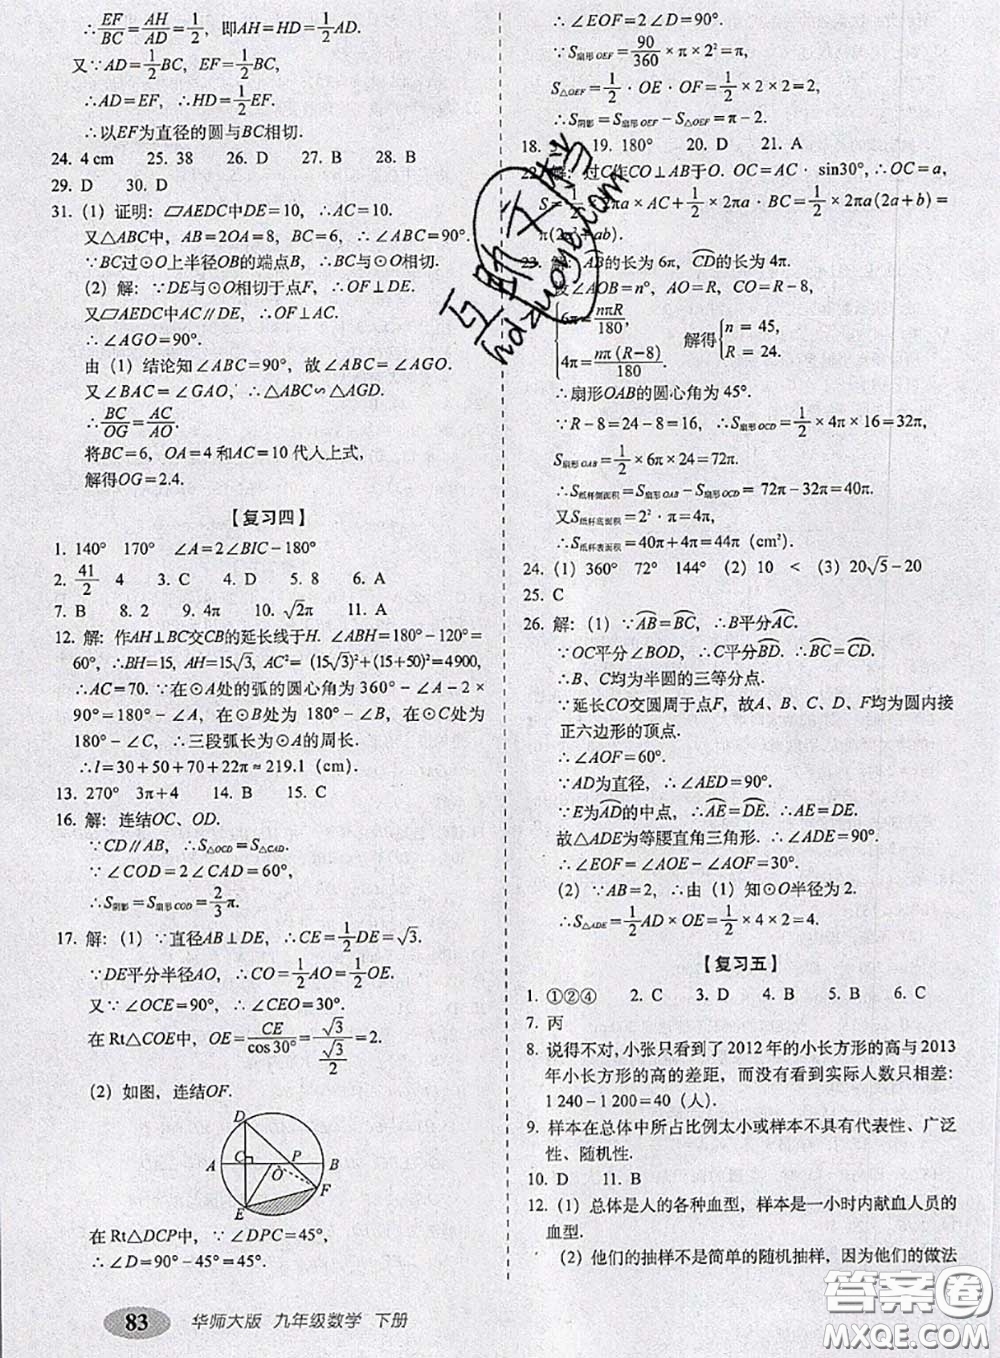 ∴EF/BC=AH/AD=1/2，即AH=HD=1/2AD.
又∵AD=1/2BC，EF=1/2BC，
∴AD=EF，∴HD=1/2EF.
∴以EF为直径的圆与BC相切.
24. 4 cm 25. 38 26. D 27. B 28. B
29. D 30. D
31. (1) 证明：▱AEDC中DE=10，∴AC=10.
又△ABC中，AB=2OA=8，BC=6，∴∠ABC=90°.
∵BC过⊙O上半径OB的端点B，∴BC与⊙O相切.
(2) 解：∵DE与⊙O相切于点F，∴OF⊥DE.
又▱AEDC中AC∥DE，∴OF⊥AC.
∴∠AGO=90°.
由（1）结论知∠ABC=90°，故∠ABC=∠AGO.
又∠BAC=∠GAO，∴△ABC∽△AGD.
∴BC/OG=AC/AO.
将BC=6，OA=4和AC=10代人上式，
解得OG=2.4.
【复习四】
1. 140° 170° ∠A=2∠BIC-180°
2. 41/2 4 3. C 4. D 5. 8 6. A
7. B 8. 2 9. 4π 10. √2π 11. A
12. 解：作AH⊥BC交CB的延长线于H. ∠ABH=180°-120°=
60°，∴BH=15，AH=15√3，AC²=(15√3)²+(15+50)²=4900，
∴AC=70. ∵在⊙A处的弧的圆心角为360°-∠A-2×
90°=180°-∠A，在⊙B处为180°-∠B，在⊙C处为
180°-∠C，∴三段弧长为⊙A的周长.
∴l=30+50+70+22π≈219.1（cm）.
13. 270° 3π+4 14. B 15. C
16. 解：连结OC、OD.
∵CD∥AB，∴S△OCD=S△CAD.
∵∠COD=2∠CAD=60°，
∴S阴影=S扇形COD=2/3π.
17. 解：(1) ∵直径AB⊥DE，∴CE=1/2DE=√3.
∵DE平分半径AO，∴CO=1/2AO=1/2OE.
又∵∠OCE=90°，∴∠CEO=30°.
在Rt△COE中，OE=CE/cos30°=√3/(√3/2)=2.
(2) 如图，连结OF.
D
A C O P B
F
E
在Rt△DCP中，∵∠DPC=45°，
∴∠D=90°-45°=45°.
83 华师大版 九年级数学 下册
∴∠EOF=2∠D=90°.
∵S扇形OEF=90/360×π×2²=π，
S△OEF=1/2·OE·OF=1/2×2×2=2，
∴S阴影=S扇形OEF-S△OEF=π-2.
18. 3 19. 180° 20. D 21. A
22. 解：过C作CO⊥AB于O. OC=AC·sin30°，∴OC=a，
S=1/2·2πa×AC+1/2×2πa·BC=1/2×2πa(2a+b)=
π(2a²+ab).
23. 解：AB的长为6π，CD的长为4π.
设∠AOB=n°，AO=R，CO=R-8，
{6π=nπR/180，
4π=nπ(R-8)/180. 解得{n=45，
R=24.
∴扇形OAB的圆心角为45°.
∵R-8=24-8=16，∴S扇形OCD=1/2×4π×16=32π，
S扇形OAB=1/2×6π×24=72π.
∴S纸杯侧面积=S扇形OAB-S扇形OCD=72π-32π=40π.
又S纸杯底面积=2²·π=4π，
∴S纸杯表面积=40π+4π=44π（cm²）.
24. (1) 360° 72° 144° (2) 10 < (3) 20√5-20
25. C
26. 解：(1) ∵AB=BC，∴B平分AC.
∵OC平分∠BOD，∴C平分BD. ∴BC=CD.
∴B、C均为半圆的三等分点.
∵延长CO交圆周于点F，故A、B、C、D、F均为圆内接
正六边形的顶点.
∴∠AOF=60°.
∵AD为直径，∴∠AED=90°.
∵E为AD的中点，∴AE=DE. ∴AE=DE.
故△ADE为等腰直角三角形. ∴∠ADE=90°.
∴∠EOF=∠AOE-∠AOF=30°.
(2) ∵AB=2，∴由（1）知⊙O半径为2.
∴S△ADE=1/2AD×OE=1/2×4×2=4.
【复习五】
1. ①②④ 2. C 3. D 4. B 5. B 6. C
7. 丙
8. 说得不对，小张只看到了2012年的小长方形的高与2013
年小长方形的高的差距，而没有看到实际人数只相差：
1240-1200=40（人）.
9. 样本在总体中所占比例太小或样本不具有代表性、广泛
性、随机性.
10. D 11. B
12. (1) 总体是人的各种血型，样本是一小时内献血人员的
血型.
(2) 他们的抽样不是简单的随机抽样，因为他们的做法
互助文档
hdzuoye.com
答案圈
MXQE.COM